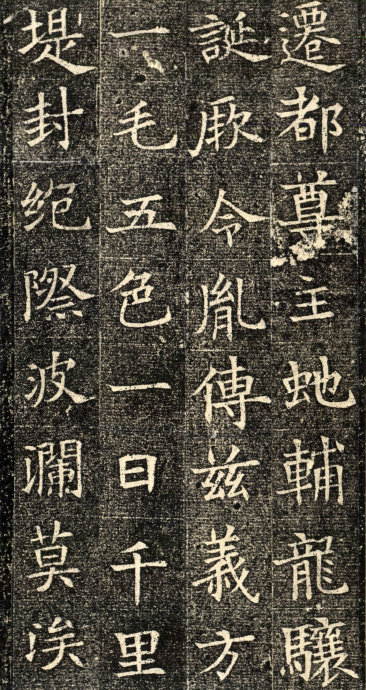 遷都尊主虵輔龍驤
誕厥令胤傳兹義方
一毛五色一日千里
堤封絕際波瀾莫涘